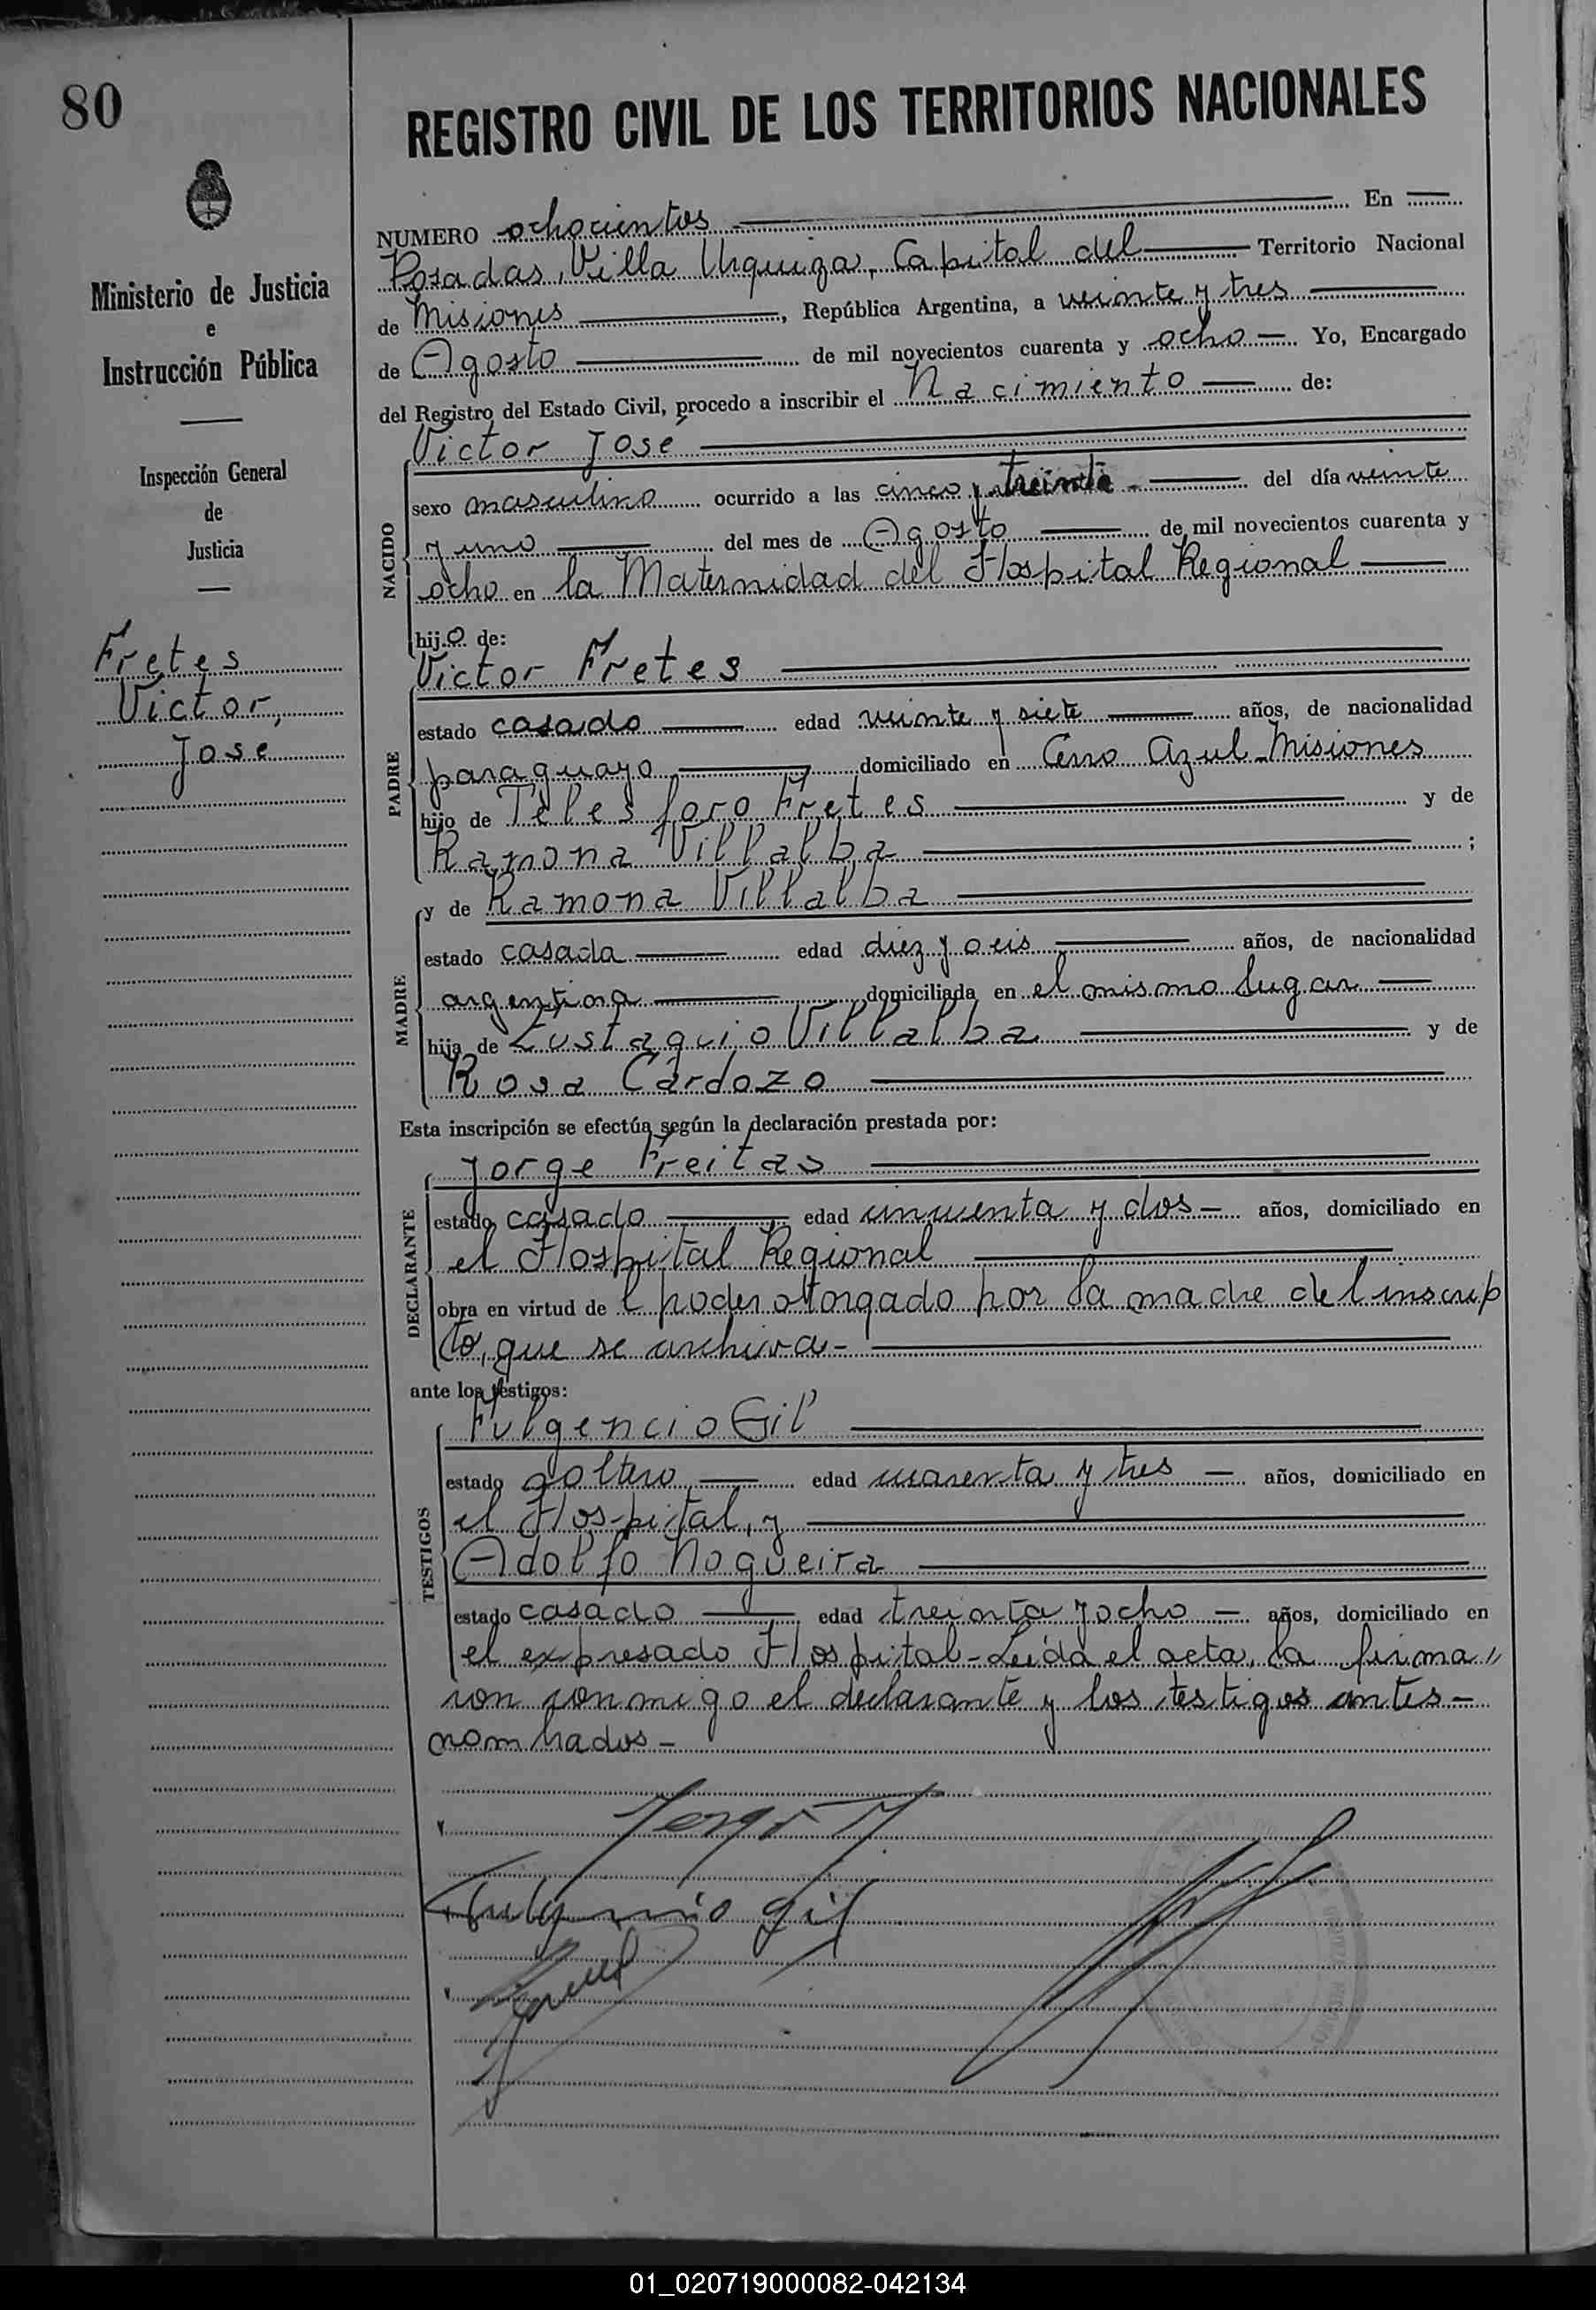 80
Ministerio de Justicia
e
Instrucción Pública
Inspección General
de
Justicia
Fretes
Victor,
Jose
REGISTRO CIVIL DE LOS TERRITORIOS NACIONALES
NUMERO ochocientos En
Posadas, Villa Urquiza, Capital del Territorio Nacional
de Misiones, República Argentina, a veinte y tres
de Agosto de mil novecientos cuarenta y ocho Yo, Encargado
del Registro del Estado Civil, procedo a inscribir el Nacimiento de:
NACIDO
Victor José
sexo masculino ocurrido a las cinco y treinta del día veinte
y uno del mes de Agosto de mil novecientos cuarenta y
ocho en la Maternidad del Hospital Regional
hijo de:
PADRE
Victor Fretes
estado casado edad veinte y siete años, de nacionalidad
paraguayo domiciliado en Cerro Azul-Misiones
hijo de Telesforo Fretes y de
Ramona Villalba ;
MADRE
y de Ramona Villalba
estado casada edad diez y seis años, de nacionalidad
argentina domiciliada en el mismo lugar
hija de Eustaquio Villalba y de
Rosa Cardozo
Esta inscripción se efectúa según la declaración prestada por:
DECLARANTE
Jorge Freitas
estado casado edad cincuenta y dos años, domiciliado en
el Hospital Regional
obra en virtud del poder otorgado por la madre del inscrip
to, que se archiva-
ante los testigos:
TESTIGOS
Fulgencio Gil
estado soltero edad cuarenta y tres años, domiciliado en
el Hospital, y
Adolfo Nogueira
estado casado edad treinta y ocho años, domiciliado en
el expresado Hospital-Leída el acta, la firma"
ron conmigo el declarante y los testigos antes-
nombrados-
Fulgencio Gil
01_020719000082-042134